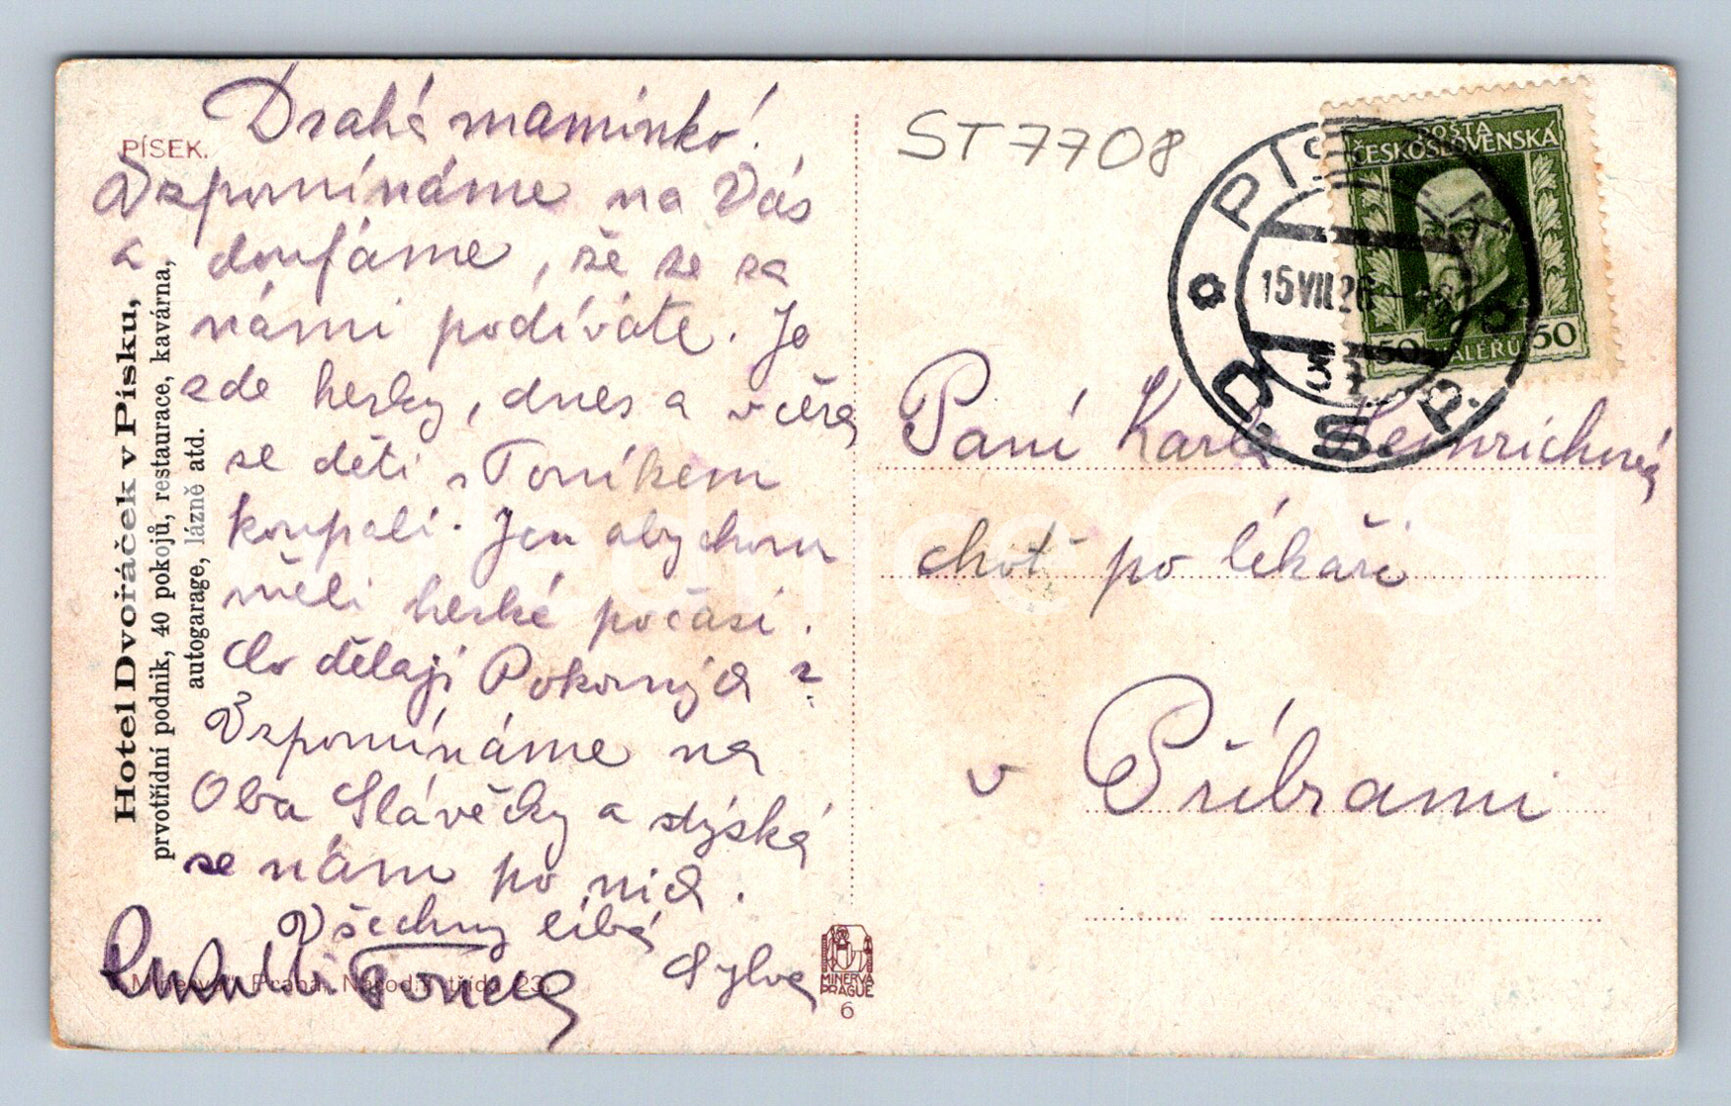 PÍSEK.
Drahá maminko!
Vzpomínáme na Vás
a doufáme, že se za
námi podíváte. Je
zde hesky, dnes a včera
se děti s Toníkem
koupali. Jen abychom
měli heské počasí.
Co dělají Pokorných?
Vzpomínáme na
Oba Slávěčky a stýská
se nám po nich.
Všechny líbá
Sylva
Hotel Dvořáček v Písku,
prvotřídní podnik, 40 pokojů, restaurace, kavárna,
autogarage, lázně atd.
Minerva, Praha, Národní třída 23.
MINERVA
PRAGUE
6
ST7708
POŠTA
ČESKOSLOVENSKÁ
50 HALÉŘŮ 50
PÍSEK
15 VII 26
Paní Karla Heinrichová
choť po lékaři
v Příbrami